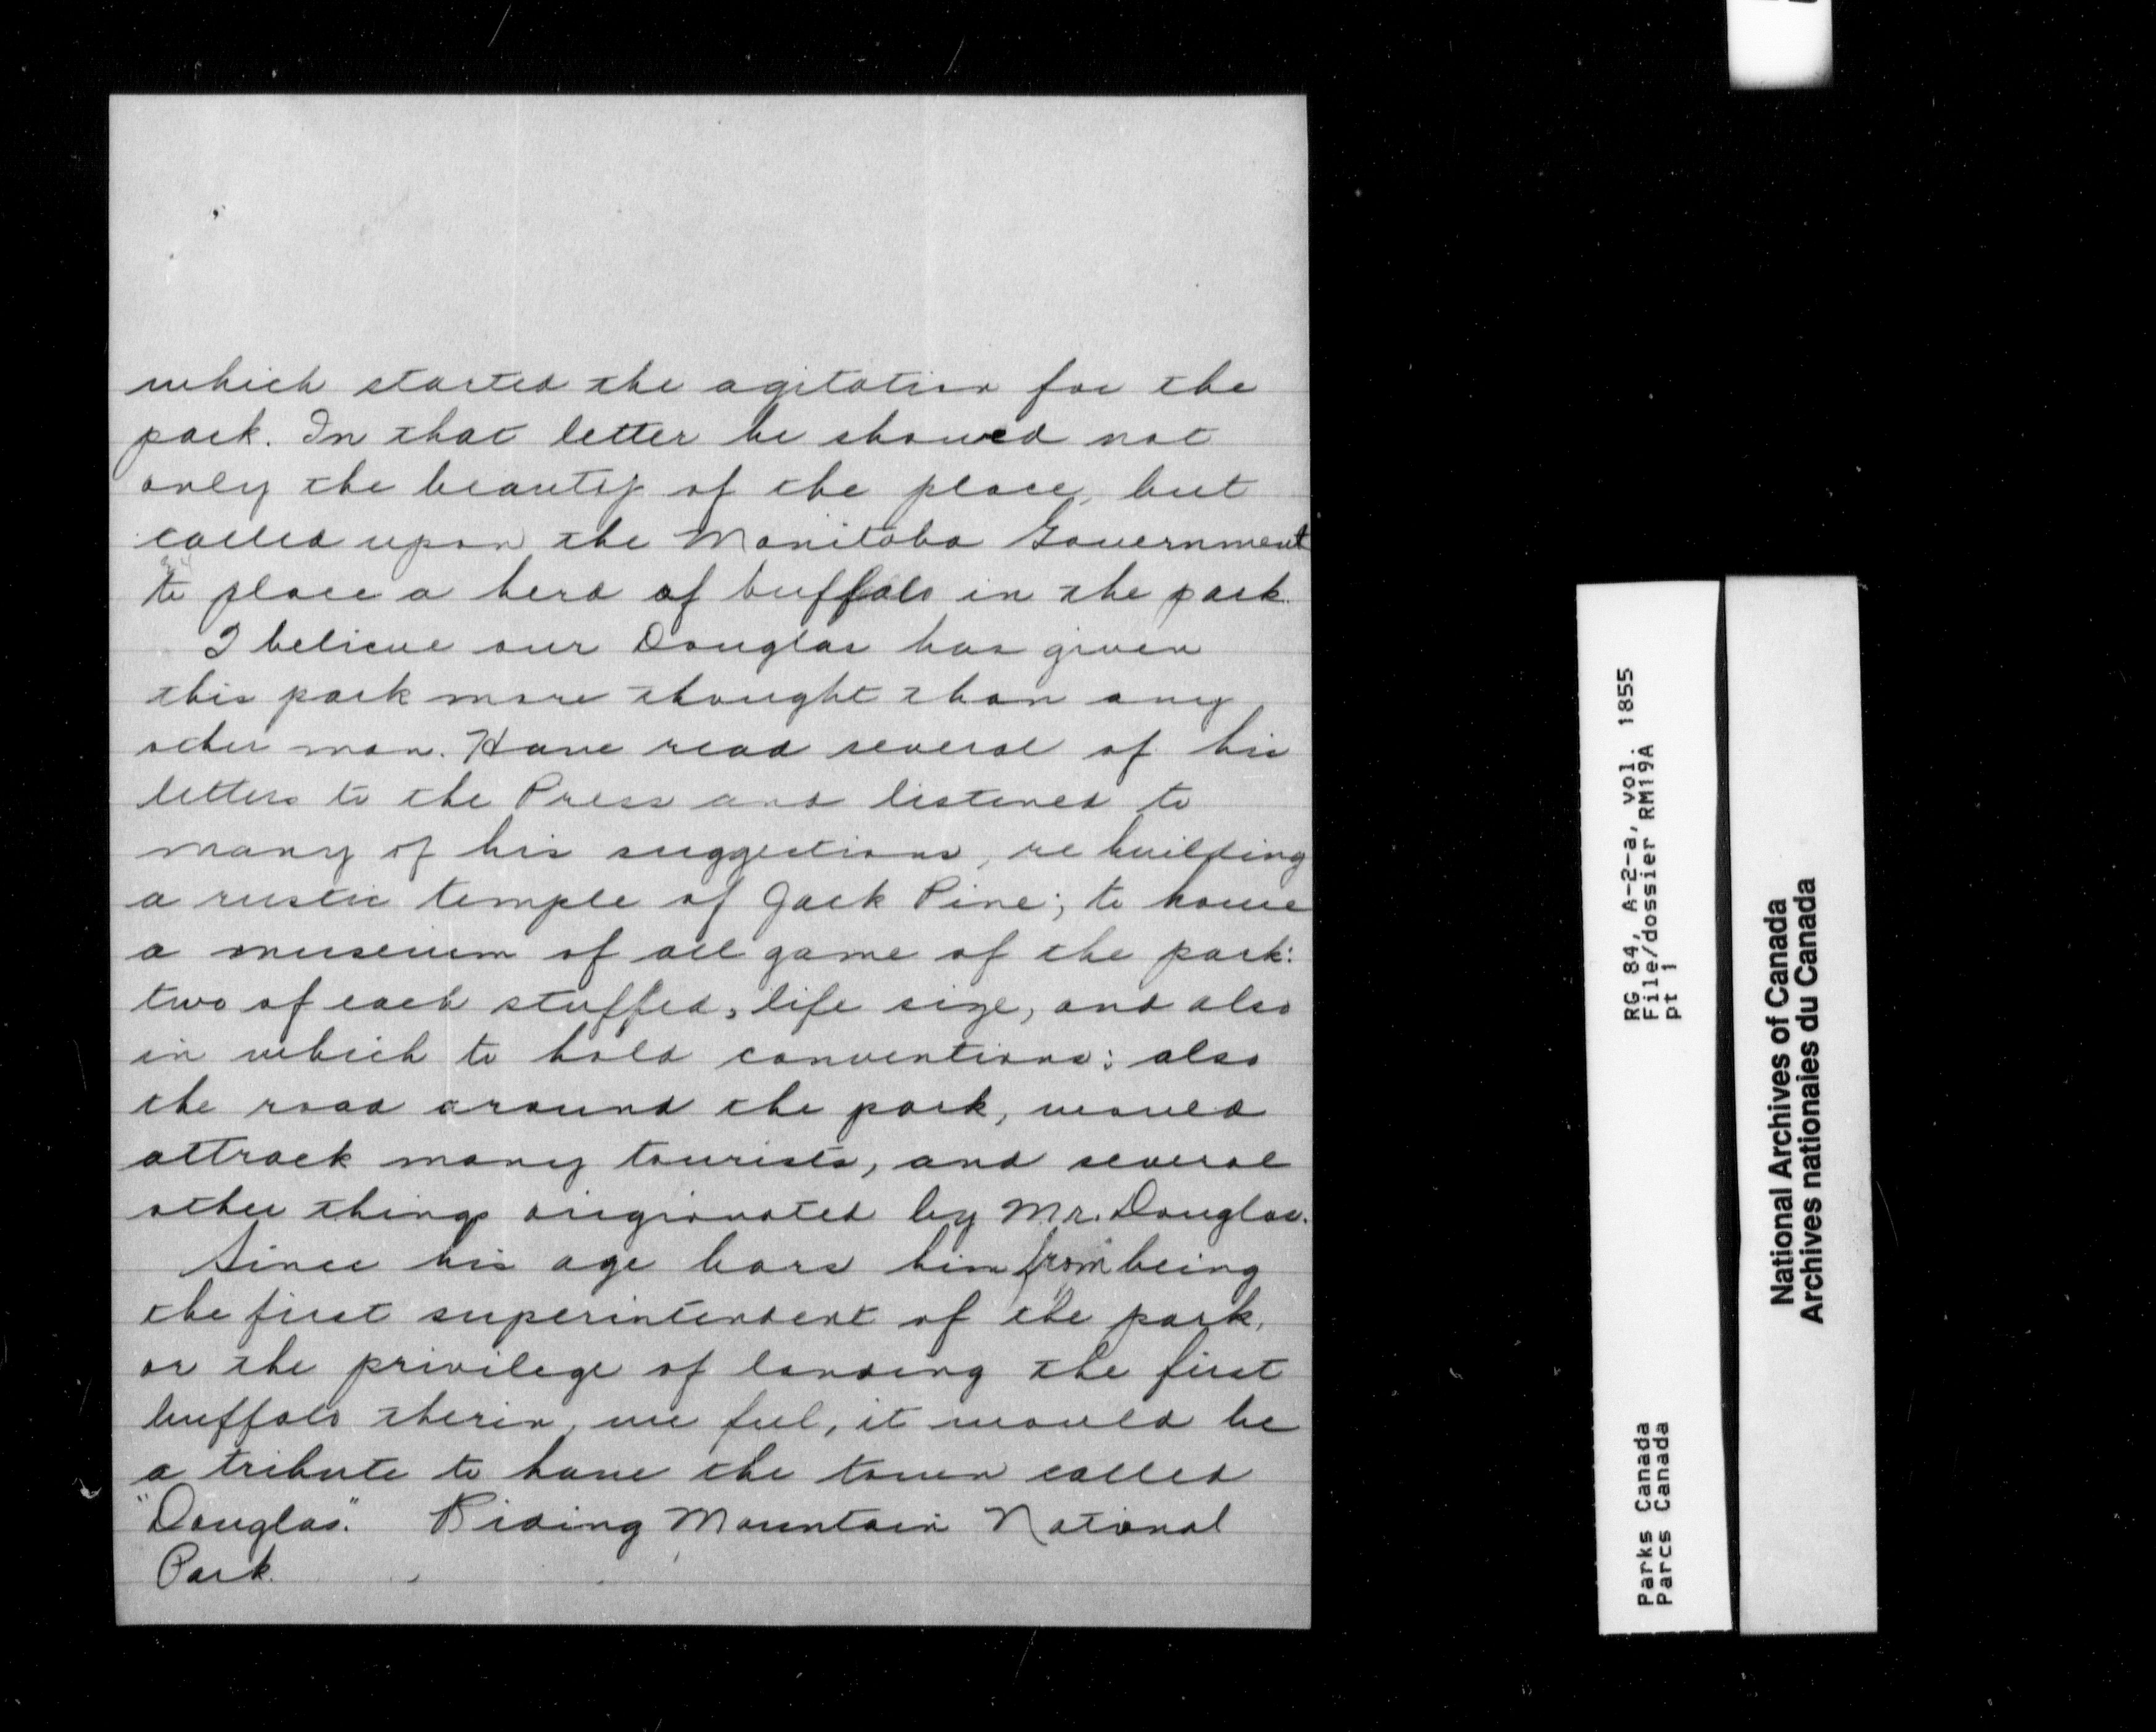 which started the agitation for the
park. In that letter he showed not
only the beauty of the place, but
called upon the Manitoba Government
to place a herd of buffalo in the park.
I believe our Douglas has given
this park more thought than any
other man. Have read several of his
letters to the Press and listened to
many of his suggestions, re building
a rustic temple of Jack Pine; to house
a museium of all game of the park:
two of each stuffed, life size, and also
in which to hold conventions: also
the road around the park, would
attrack many tourists, and several
other things originated by Mr. Douglas.
Since his age bars him from being
the first superintendent of the park,
or the privilege of landing the first
buffalo therin, we feel, it would be
a tribute to have the town called
"Douglas". Riding Mountain National
Park.
RG 84, A-2-a, vol. 1855
File/dossier RM19A
pt 1
Parks Canada
Parcs Canada
National Archives of Canada
Archives nationales du Canada